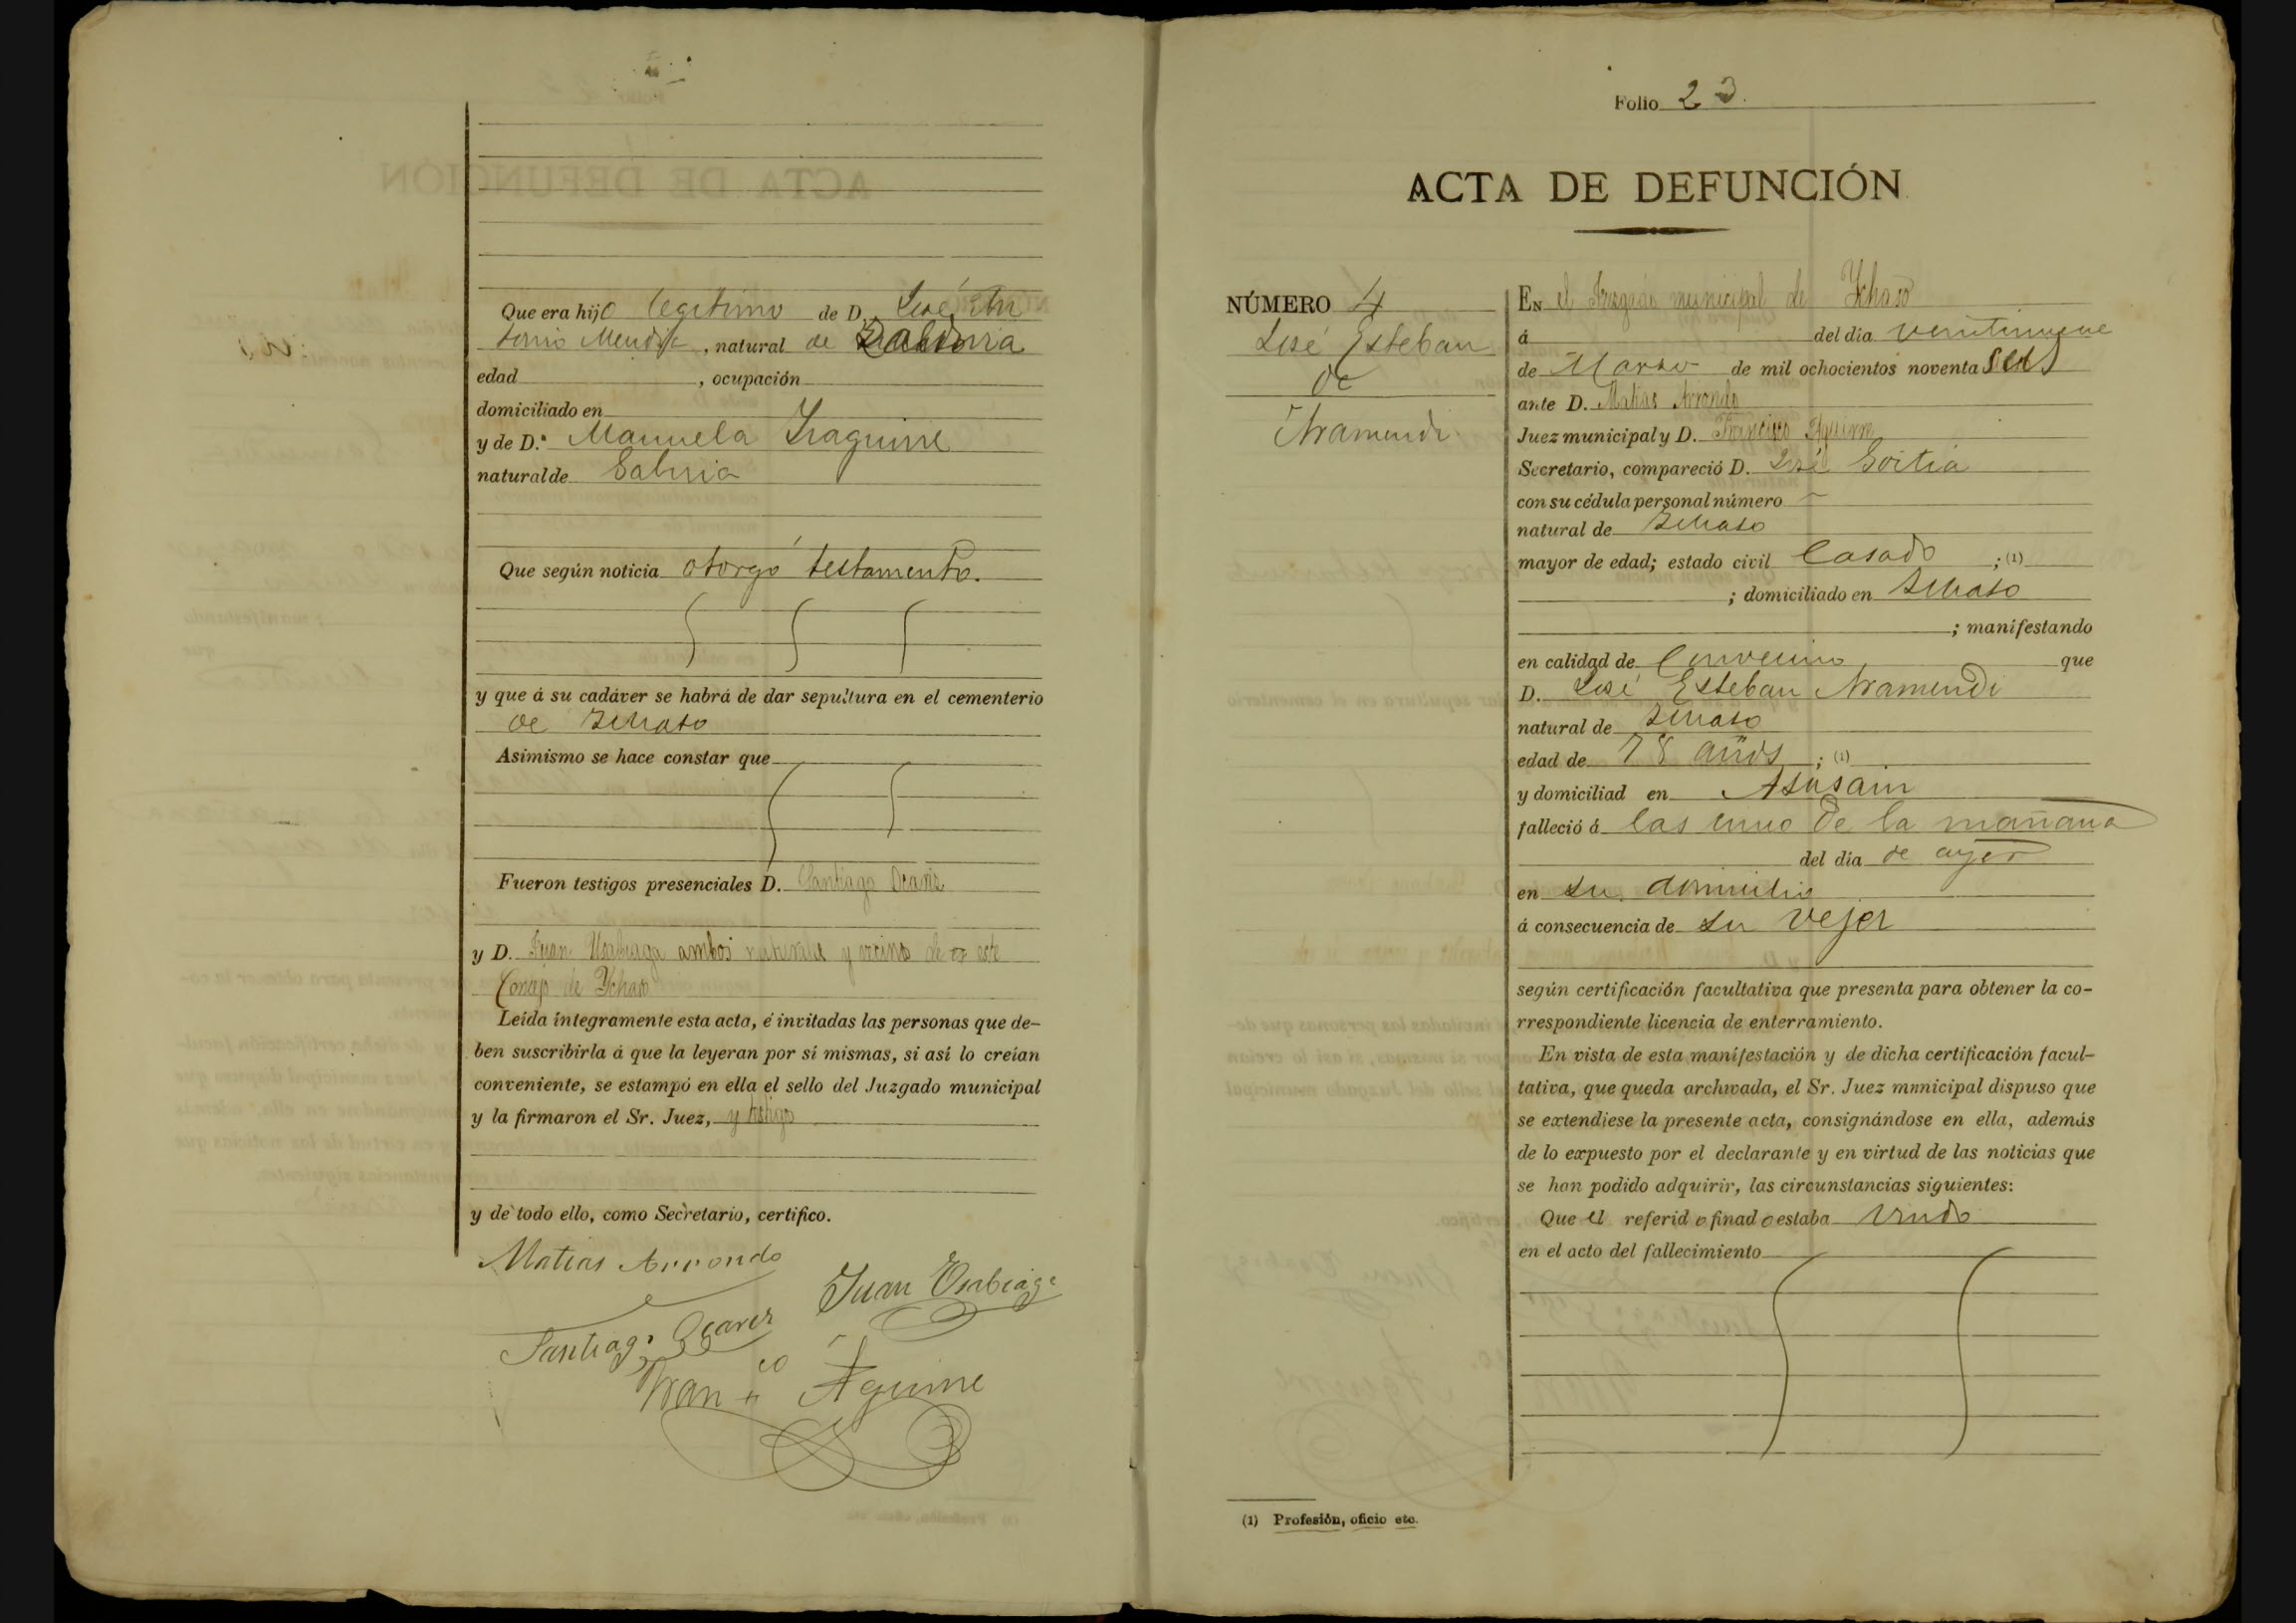 Que era hijo legítimo de D. José An
tonio Mendi, natural de Zaldivia
edad , ocupación
domiciliado en
y de D.ª Manuela Iraguirre
natural de Gabiria
Que según noticia otorgó testamento.
y que á su cadáver se habrá de dar sepultura en el cementerio
de Ichaso
Asimismo se hace constar que
Fueron testigos presenciales D. Santiago
y D. Juan Usabiaga ambos naturales y vecinos de este
Concejo de Ychaso
Leída íntegramente esta acta, é invitadas las personas que de-
ben suscribirla á que la leyeran por sí mismas, si así lo creían
conveniente, se estampó en ella el sello del Juzgado municipal
y la firmaron el Sr. Juez, y testigo
y de todo ello, como Secretario, certifico.
Matias Arrondo
Juan Usabiaga
Santiago
Fran co Aguirre
Folio 23.
ACTA DE DEFUNCIÓN
NÚMERO 4
José Esteban
de
Aramendi
EN el Juzgado municipal de Ychaso
á del día veintinueve
de Marzo de mil ochocientos noventa seis
ante D. Matias Arrondo
Juez municipal y D. Francisco Aguirre
Secretario, compareció D. José Goitia
con su cédula personal número
natural de Ichaso
mayor de edad; estado civil Casado ; (1)
; domiciliado en Ichaso
; manifestando
en calidad de Convecino que
D. José Esteban Aramendi
natural de Ichaso
edad de 78 años ; (1)
y domiciliad en Arsusain
falleció á las cinco de la mañana
del día de ayer
en su domicilio
á consecuencia de su vejez
según certificación facultativa que presenta para obtener la co-
rrespondiente licencia de enterramiento.
En vista de esta manifestación y de dicha certificación facul-
tativa, que queda archivada, el Sr. Juez mnnicipal dispuso que
se extendiese la presente acta, consignándose en ella, además
de lo expuesto por el declarante y en virtud de las noticias que
se han podido adquirir, las circunstancias siguientes:
Que el referido finado estaba viudo
en el acto del fallecimiento
(1) Profesión, oficio etc.